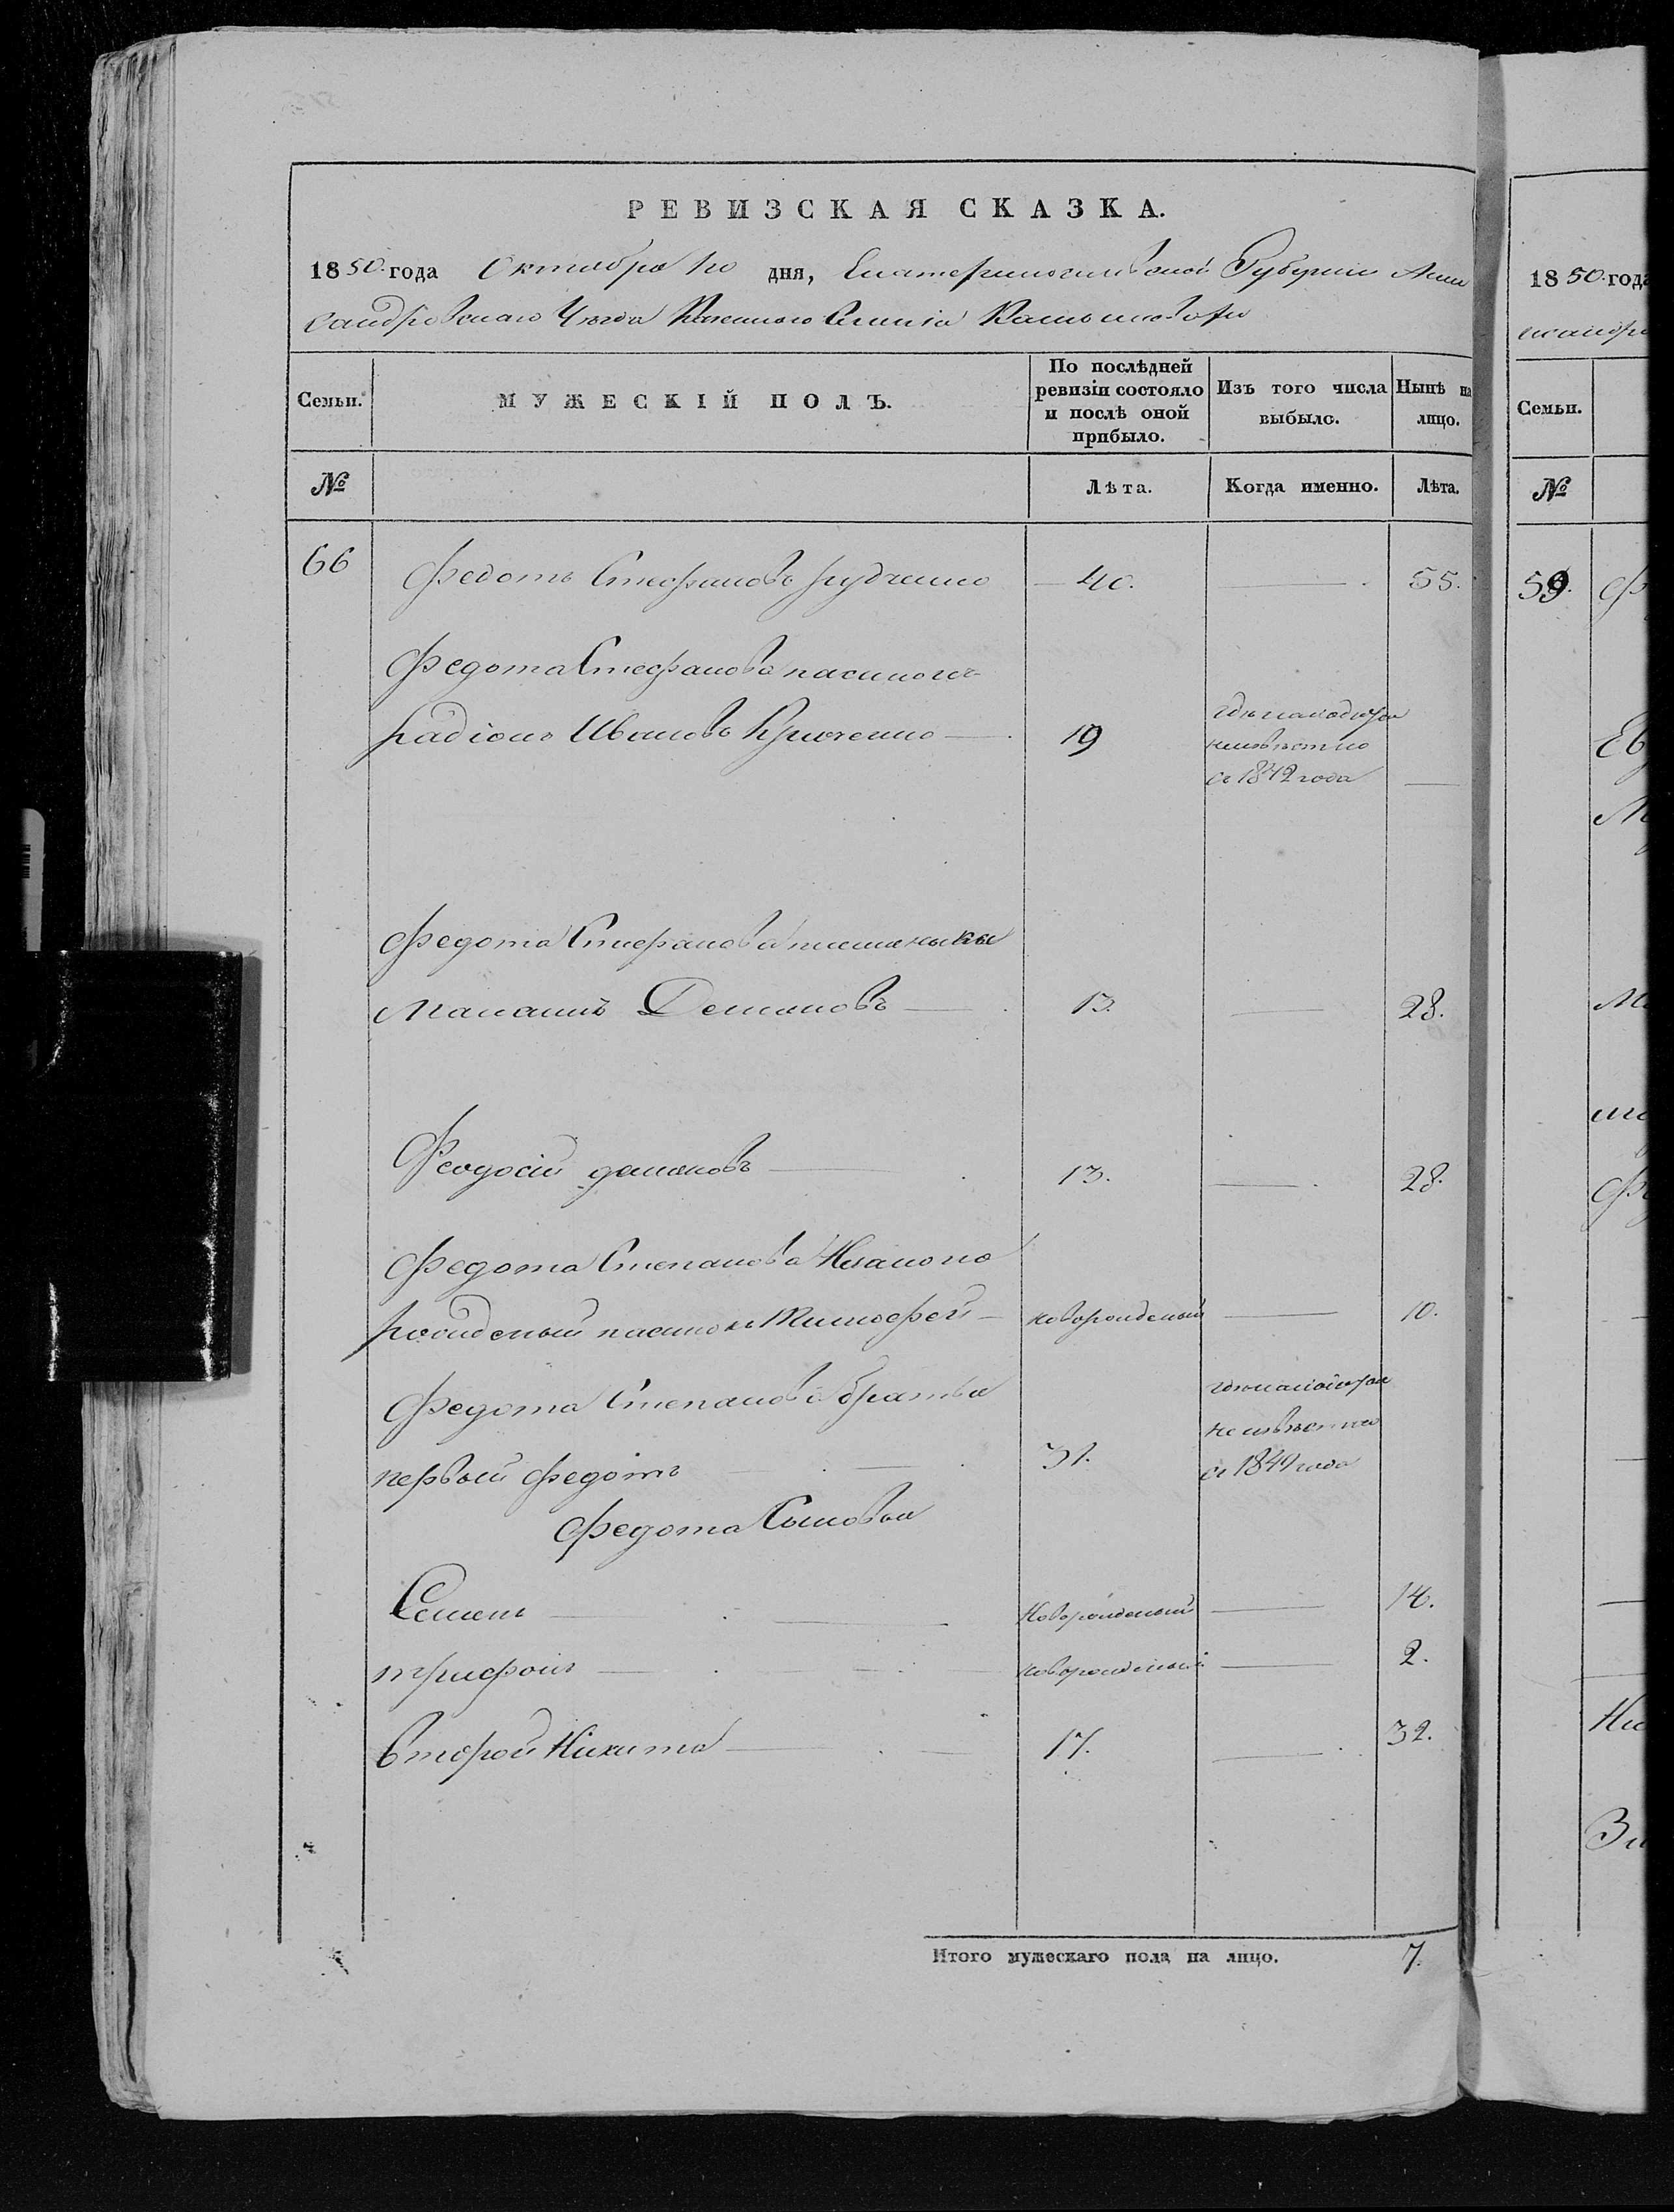 РЕВИЗСКАЯ СКАЗКА.
1850. года Октября 10 дня, Екатеринославской Губернии Алек
сандровскаго Уезда Казенного Селения
Семьи. МУЖЕСКІЙ ПОЛЪ. По послѣдней ревизіи состояло и послѣ оной прибыло. Изъ того числа выбыло. Нынѣ на лицо.
№ Лѣта. Когда именно. Лѣта.
66 Федотъ Стефановъ Рудченко 40. 55.
Федота Стефанова пасынокъ
Радіонъ Ивановъ 19 где находится неизвестно съ 1842 года
Федота Стефанова племеныки
Демяновъ 13. 28.
Феодосій демяновъ 13. 28.
Федота Степанова Незаконо
рожденый пасынокъ Тимофей новорожденый 10.
Федота Степанова братья
первый Федотъ 31. где находится неизвестно съ 1849 года
Федота Сыновья
Семенъ Новорожденый 14.
трифонъ новорожденый 2.
Второй Никита 17. 32.
Итого мужескаго пола на лицо. 7.
1850. года
Семьи.
№
59.